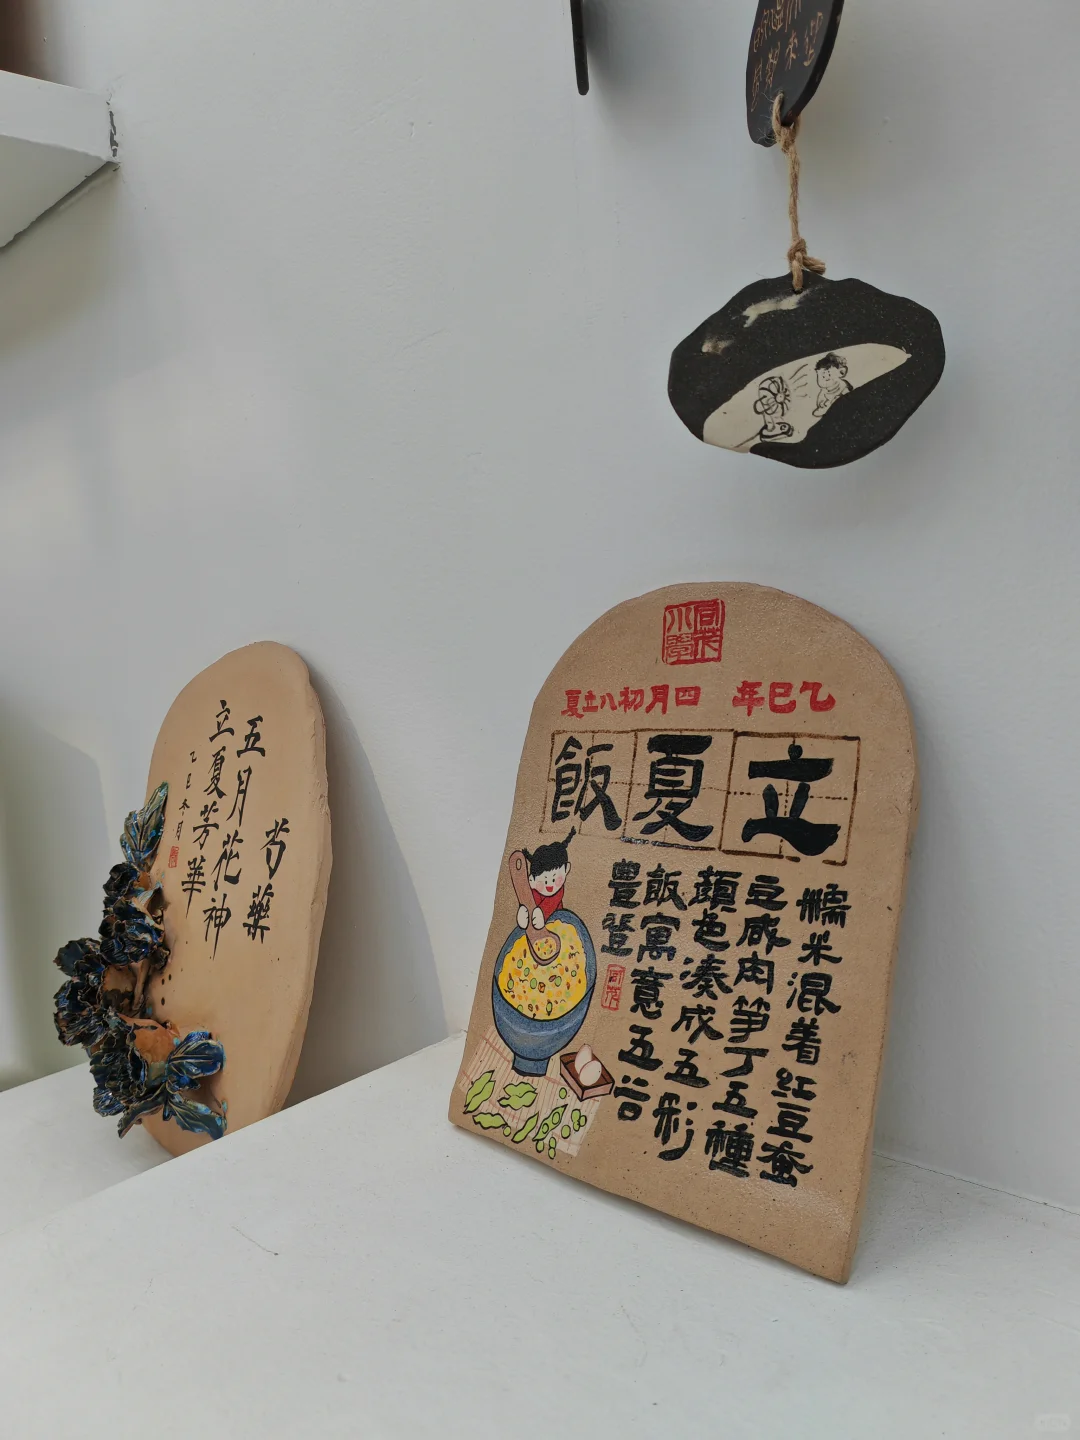 乙巳年 四月初八立夏
立夏飯
糯米混着红豆蚕
豆咸肉笋丁五種
顔色湊成五彩
飯寓意五谷
豐登
芍藥
五月花神
立夏芳華
乙巳